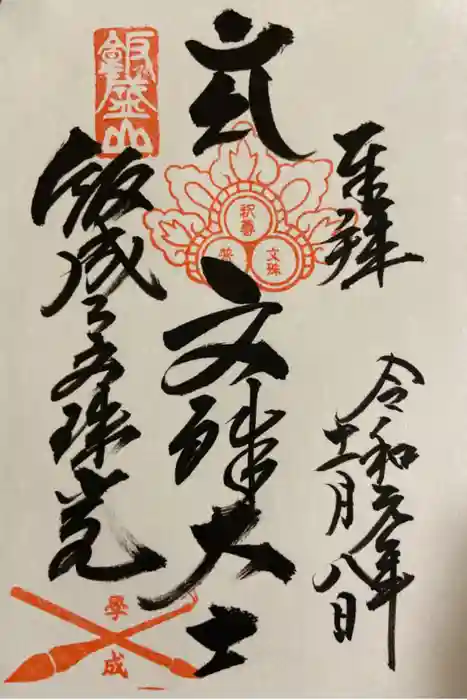 奉拝
令和元年
十一月八日
文殊大士
釈尊
普
文殊
飯盛山
飯盛文殊堂
學
成